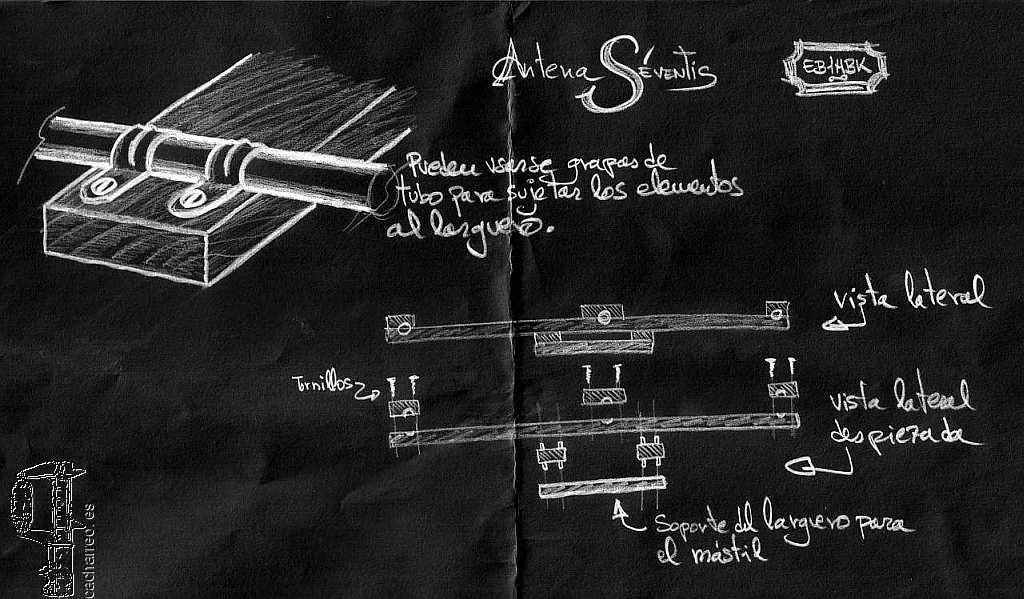 Antena Séventis
EB1HBK
Pueden usarse grapas de
tubo para sujetar los elementos
al larguero.
vista lateral
Tornillos
vista lateral
despiezada
Soporte del larguero para
el mástil
cacharreo.es